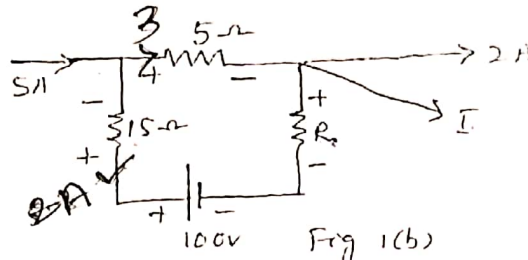 3
5Ω
2A
5A
+
−
−
+
I
15Ω
R
+
−
2A
+
−
100V
Fig 1(b)